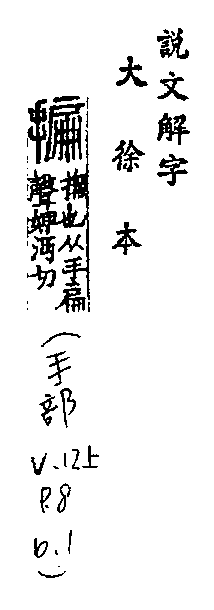 說文解字
大徐本
揙
撫也从手扁
聲婢沔切
(手部
v.12上
P.8
b.1)